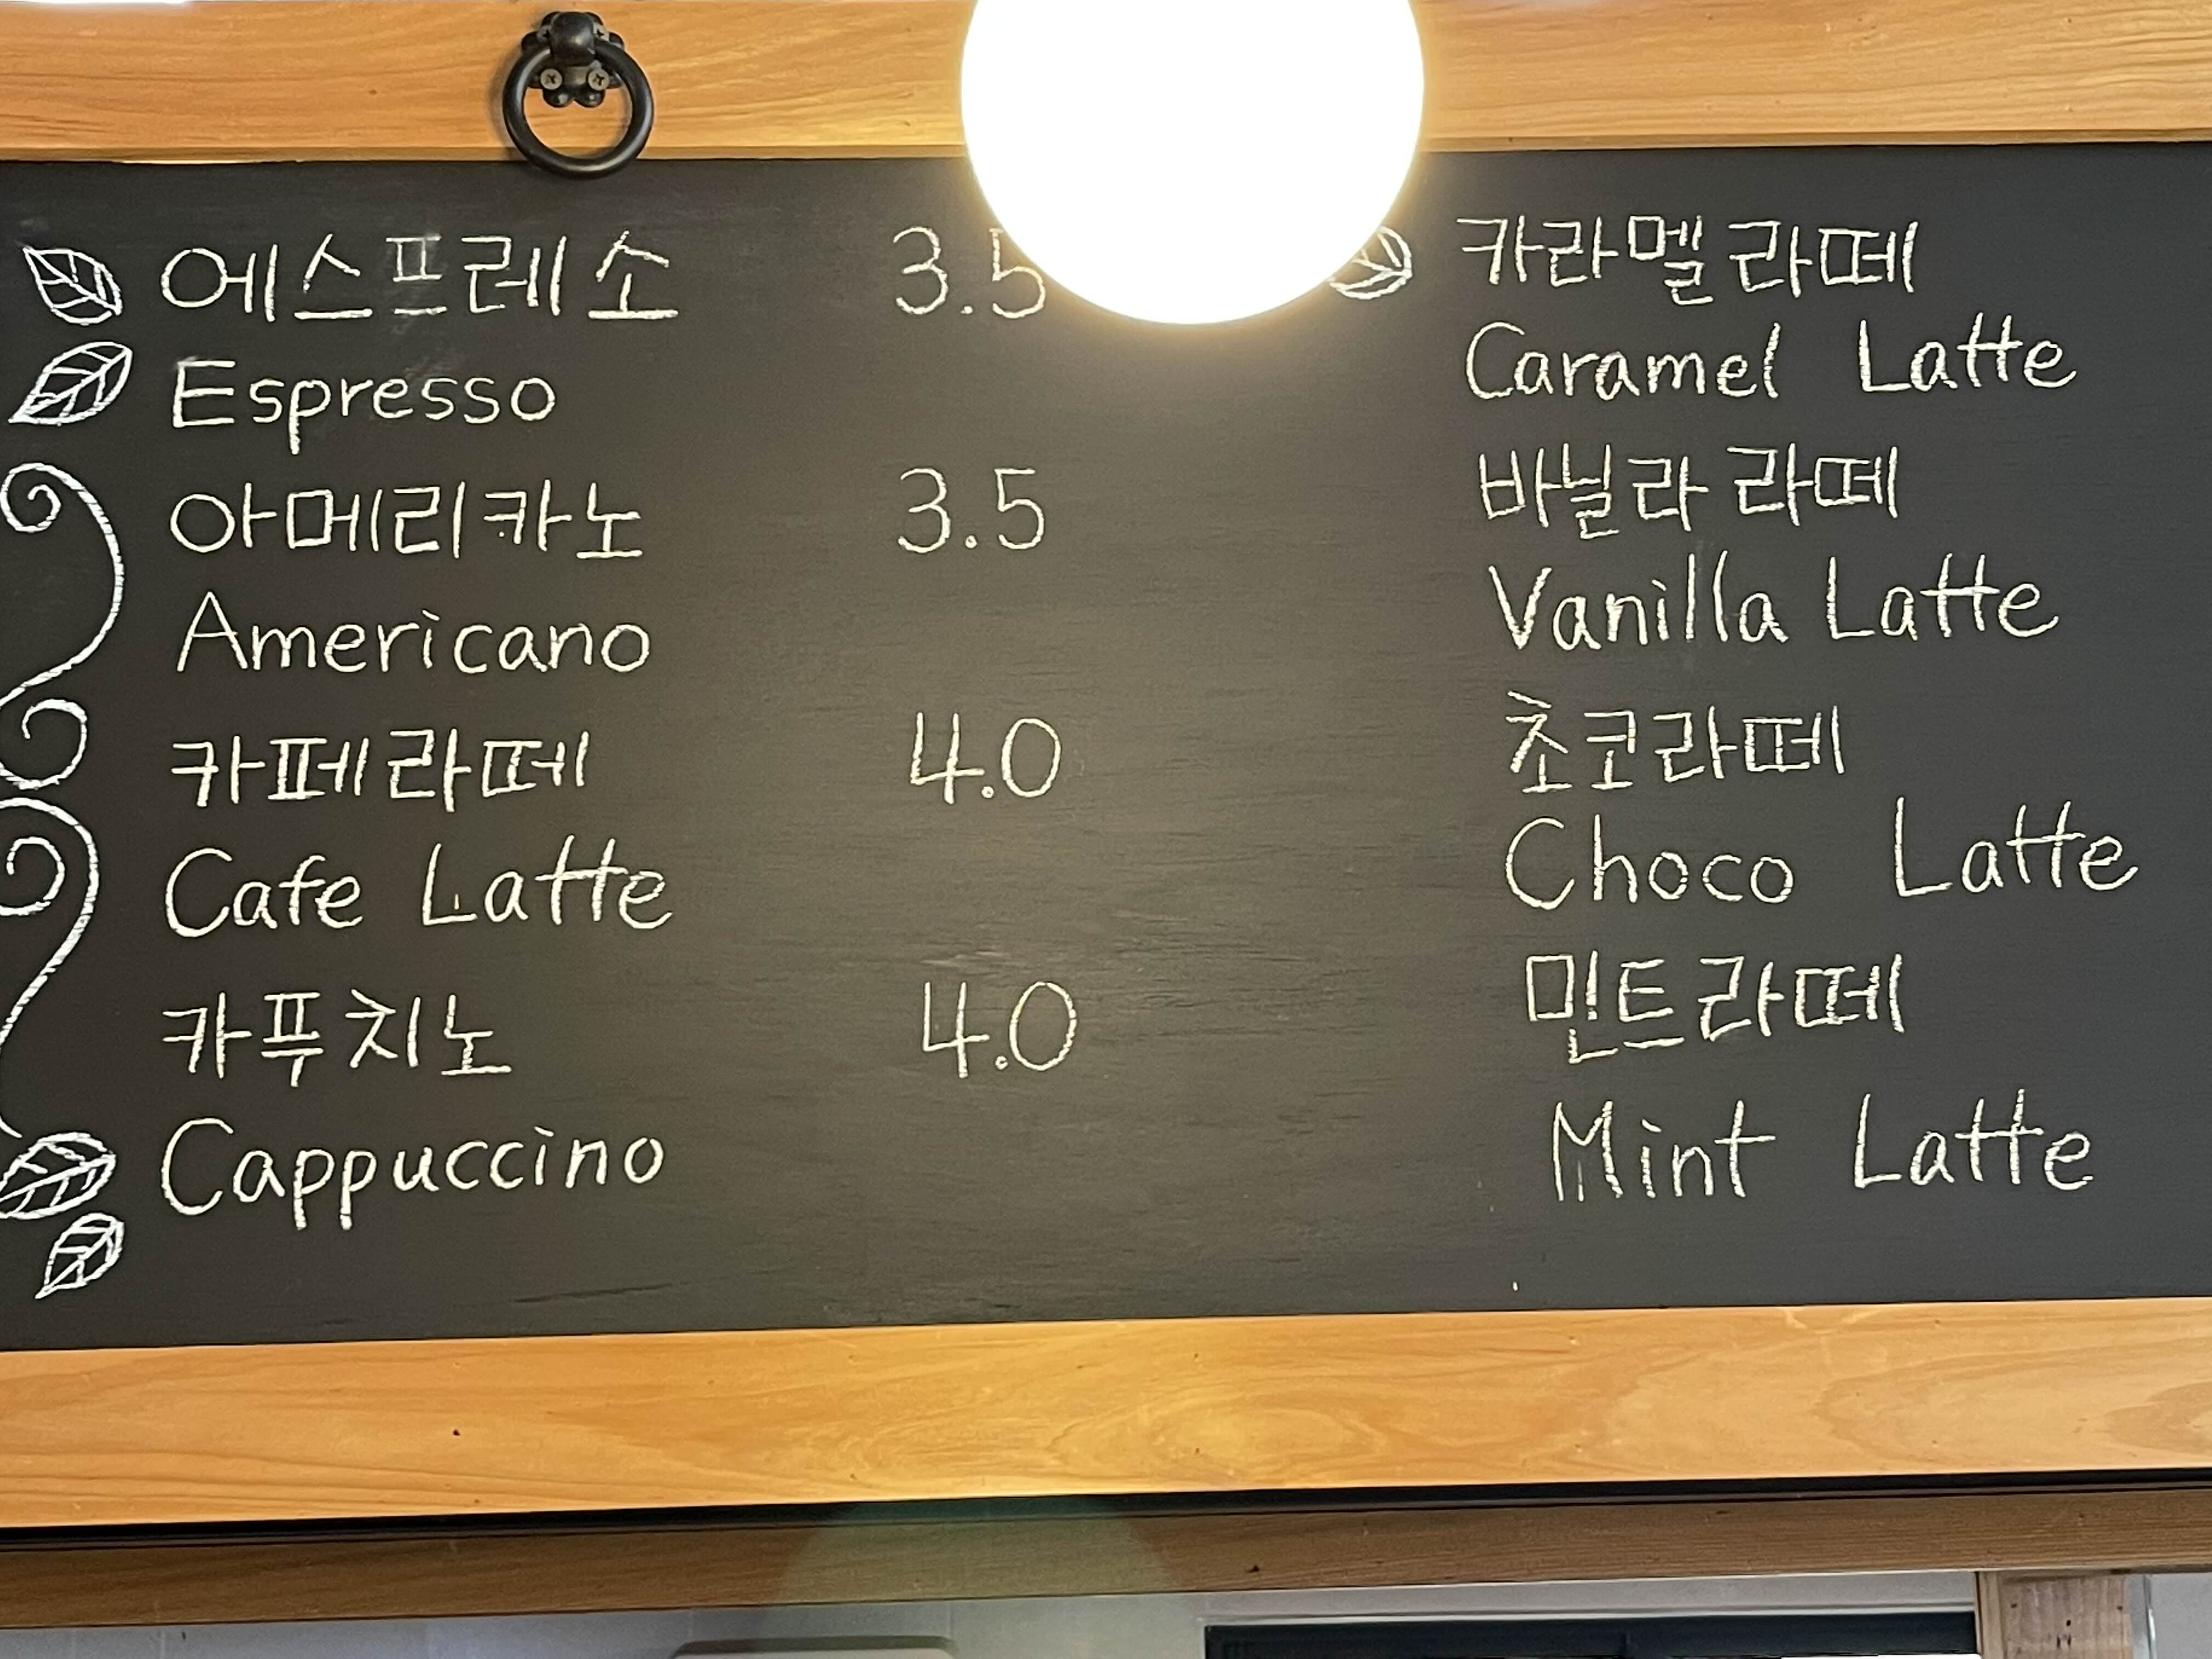 에스프레소 3.5
Espresso
아메리카노 3.5
Americano
카페라떼 4.0
Cafe Latte
카푸치노 4.0
Cappuccino
카라멜라떼
Caramel Latte
바닐라라떼
Vanilla Latte
초코라떼
Choco Latte
민트라떼
Mint Latte